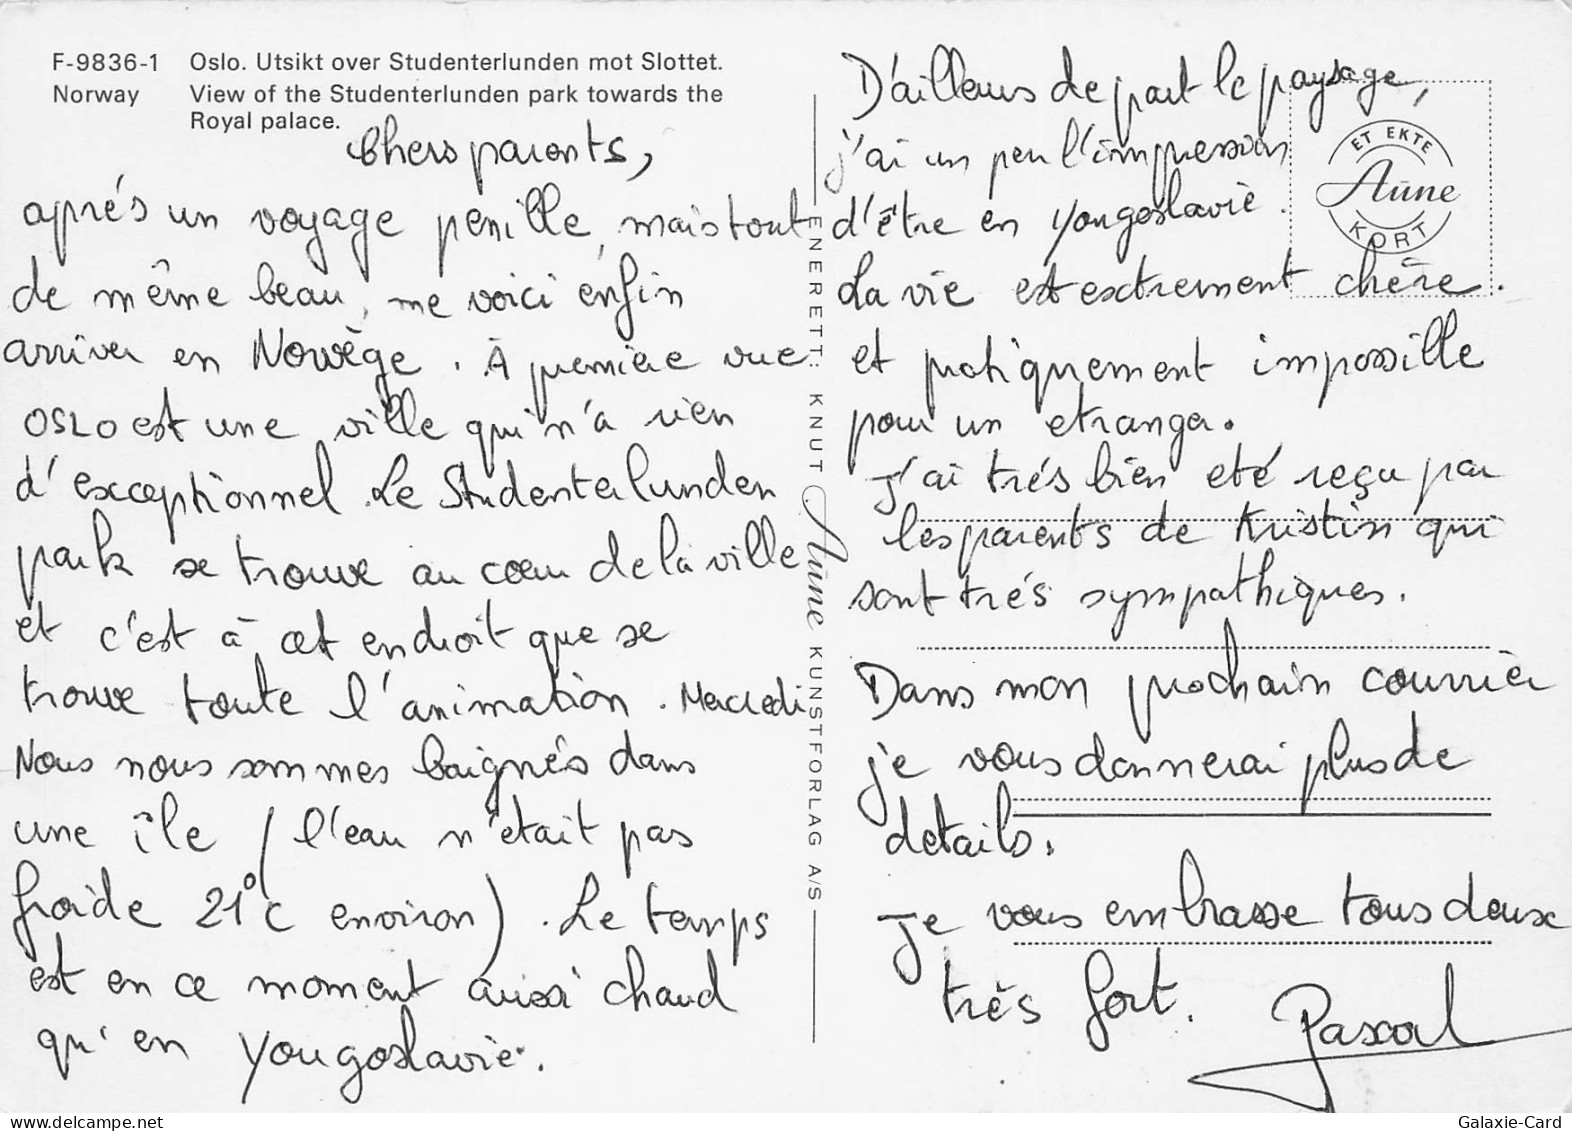 F-9836-1 Oslo. Utsikt over Studenterlunden mot Slottet.
Norway View of the Studenterlunden park towards the
Royal palace.
Chers parents,
aprés un voyage penille, mais tout
de même beau, me voici enfin
arriver en Norvège. À première vue
OSLO est une ville qui n'a rien
d'exceptionnel. Le Studenterlunden
park se trouve au cœur de la ville
et c'est à cet endroit que se
trouve toute l'animation. Mercredi
Nous nous sommes baignés dans
une île (l'eau n'était pas
froide 21°C environ). Le temps
est en ce moment aussi chaud
qu'en Yougoslavie.
ENERETT: KNUT Aune KUNSTFORLAG A/S
D'ailleurs de part le paysage,
j'ai un peu l'impression
d'être en Yougoslavie.
La vie est extrement chère.
et pratiquement impossille
pour un etranger.
J'ai trés bien eté reçu par
les parents de Kristin qui
sont trés sympathiques.
Dans mon prochain courrier
je vous donnerai plus de
details.
Je vous embrasse tous deux
très fort.
Pascal
ET EKTE
Aune
KORT
Galaxie-Card
delcampe.net